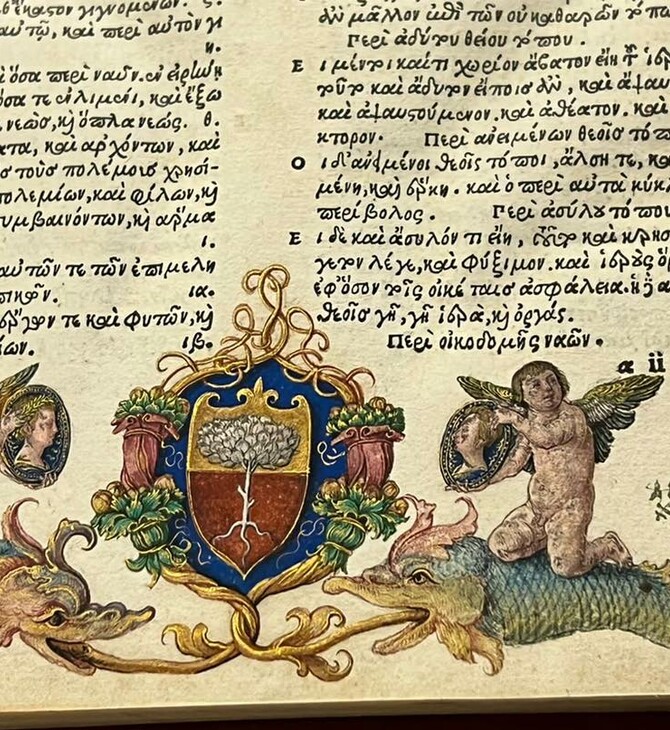 ἕκαστον γιγνομένων. ς.
αὐτῷ, καὶ περὶ αὐτὸν γι
η.
ὅσα περὶ ναῦν. ἐν εἰρήνη
ὅσα τε ἐν λιμένι, καὶ ἔξω
νεὼς, καὶ ὅπλα νεώς. θ.
ατα, καὶ ἀρχόντων, καὶ
τοὺς πολέμους χρησί-
πολεμίων, καὶ φίλων, καὶ
υμβαινόντων, καὶ ἅρμα
ι.
αὐτῶν τε τῶν ἐπιμελη
πικῶν. ια.
γων τε καὶ φυτῶν, καὶ
ίων. ιβ.
ἂν μᾶλλον ἐπὶ τῶν οὐ καθαρῶν τόπω
Περὶ ἀδύτου θείου τόπου.
Ε ἰ μέντοι καί τι χωρίον ἄβατον εἴη τοῦ ἱερ
τοῦτο καὶ ἄδυτον εἴποις ἂν, καὶ ἄψαυ
καὶ ἀψαυστούμενον. καὶ ἀθέατον. καὶ
κτορον. Περὶ ἀνειμένων θεοῖς τόπ
Ο ἱ δ' ἀνειμένοι θεοῖς τόποι, ἄλση τε, κα
μένη, καὶ ἕρκη. καὶ ὁ περὶ αὐτὰ κύκλ
περίβολος. Περὶ ἀσύλου τόπου
Ε ἰ δὲ καὶ ἄσυλόν τι εἴη, τοῦτο καὶ κρησ
γετον λέγε, καὶ φύξιμον. καὶ ἱεροὺς ὅρ
ἐφ' ὅσον τοῖς οἰκέταις ἀσφάλεια. ἡ δ' α
θεοῖς γῆ, γῆ ἱερὰ, καὶ ὀργάς.
Περὶ οἰκοδομῆς ναῶν.
a ii